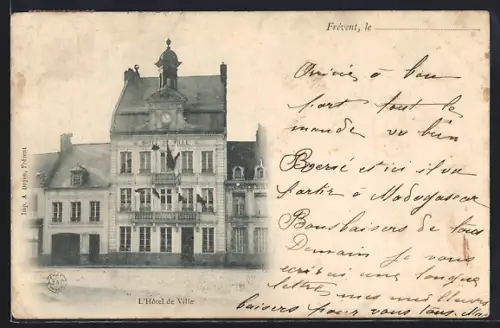 Frévent, le
Arrivés à bon
port tout le
monde va bien
et ici il va
partir à Madagascar
Bons baisers de tous
Demain je vous
écrirai une longue
lettre mes meilleurs
baisers pour vous tous.
HOTEL DE VILLE
Imp. A
Frévent
L'Hôtel de Ville